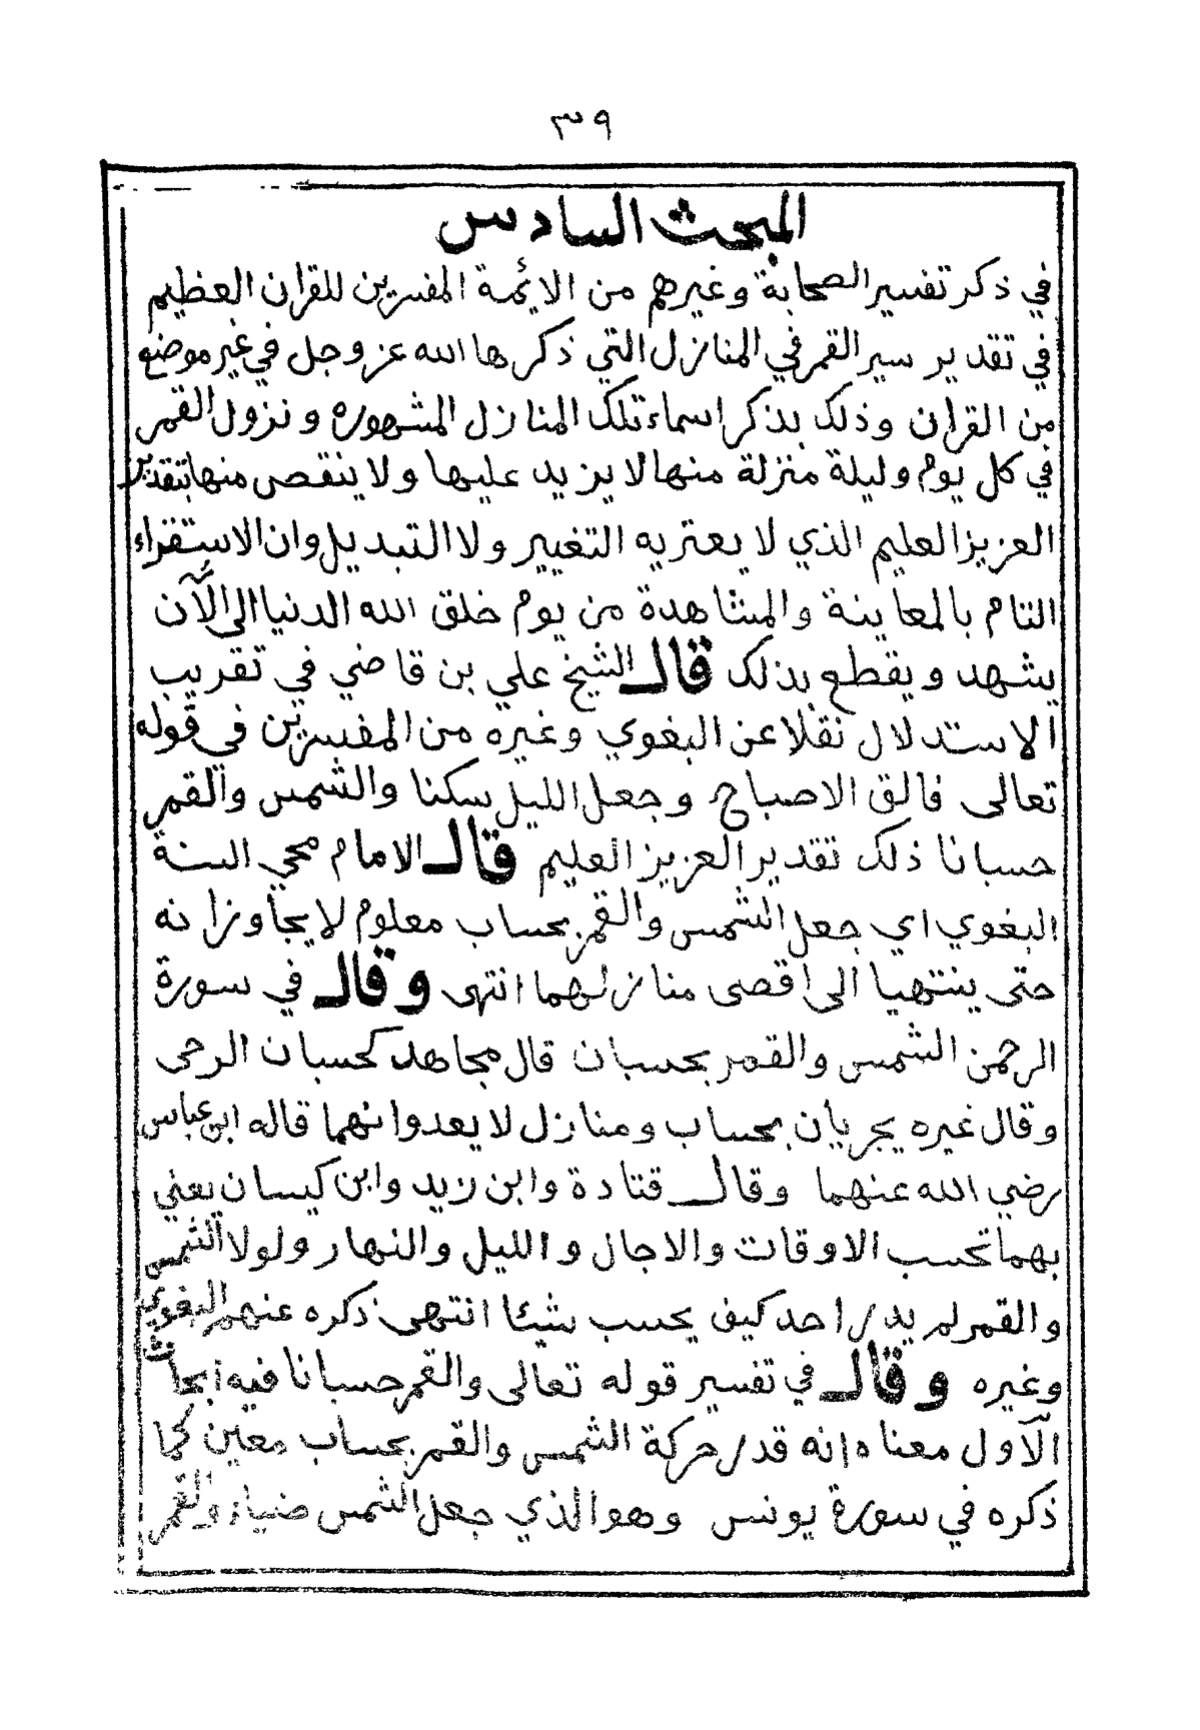 ٣٩
المبحث السادس
في ذكر تفسير الصحابة وغيرهم من الائمة المفسرين للقران العظيم
في تقدير سير القمر في المنازل التي ذكرها الله عز وجل في غير موضع
من القران وذلك بذكر اسماء تلك المنازل المشهورة ونزول القمر
في كل يوم وليلة منزلة منها لا يزيد عليها ولا ينقص منها بتقدير
العزيز العليم الذي لا يعتريه التغيير ولا التبديل وان الاستقراء
التام بالمعاينة والمشاهدة من يوم خلق الله الدنيا الى الآن
يشهد ويقطع بذلك قال الشيخ علي بن قاضي في تقريب
الاستدلال نقلا عن البغوي وغيره من المفسرين في قوله
تعالى فالق الاصباح وجعل الليل سكنا والشمس والقمر
حسبانا ذلك تقدير العزيز العليم قال الامام محي السنة
البغوي اي جعل الشمس والقمر بحساب معلوم لا يجاوزانه
حتى ينتهيا الى اقصى منازلهما انتهى وقال في سورة
الرحمن الشمس والقمر بحسبان قال مجاهد كحسبان الرحى
وقال غيره يجريان بحساب ومنازل لا يعدوانهما قاله ابن عباس
رضي الله عنهما وقال قتادة وابن زيد وابن كيسان يعني
بهما تحسب الاوقات والاجال والليل والنهار ولولا الشمس
والقمر لم يدر احد كيف يحسب شيئا انتهى ذكره عنهم البغوي
وغيره وقال في تفسير قوله تعالى والقمر حسبانا فيه ابحاث
الآول معناه انه قدر حركة الشمس والقمر بحساب معين كما
ذكره في سورة يونس وهو الذي جعل الشمس ضياء والقمر